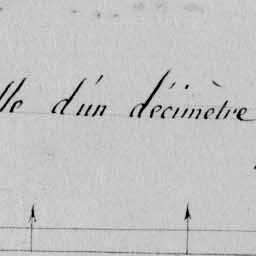 lle d'un décimètre